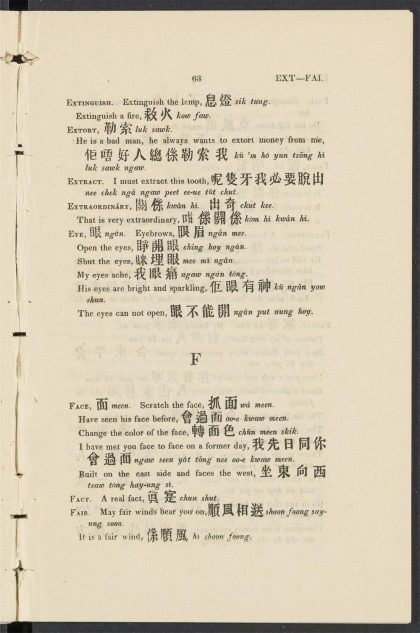 63 EXT—FAI.
EXTINGUISH. Extinguish the lamp, 息燈 sik tung.
Extinguish a fire, 救火 kow faw.
EXTORT, 勒索 luk sawk.
He is a bad man, he always wants to extort money from me,
佢唔好人總係勒索我 kü 'm hó yun tsóng hi
luk sawk ngaw.
EXTRACT. I must extract this tooth, 呢隻牙我必要脫出
nee chek ngà ngaw peet ee-ue tüt chut.
EXTRAORDINÁRY, 關係 kwán hi. 出奇 chut kee.
That is very extraordinary, 咁係關係 kòm hi kwán hi.
EYE, 眼 ngán. Eyebrows, 眼眉 ngán mee.
Open the eyes, 睜開眼 ching hoy ngán.
Shut the eyes, 瞇埋眼 mee mi ngán.
My eyes ache, 我眼痛 ngaw ngán tòng.
His eyes are bright and sparkling, 佢眼有神 kü ngán yow
shun.
The eyes can not open, 眼不能開 ngán put nung hoy.
F
FACE, 面 meen. Scratch the face, 抓面 wá meen.
Have seen his face before, 曾過面 oo-e kwaw meen.
Change the color of the face, 轉面色 chün meen skik.
I have met you face to face on a former day, 我先日同你
曾過面 ngaw seen yàt tông nee oo-e kwaw meen.
Built on the east side and faces the west, 坐東向西
tsaw tong hay-ung si.
FACT. A real fact, 眞寔 chun shut.
FAIR. May fair winds bear you on, 順風相送 shoon foong say-
ung soon.
It is a fair wind, 係順風 hi shoon foong.